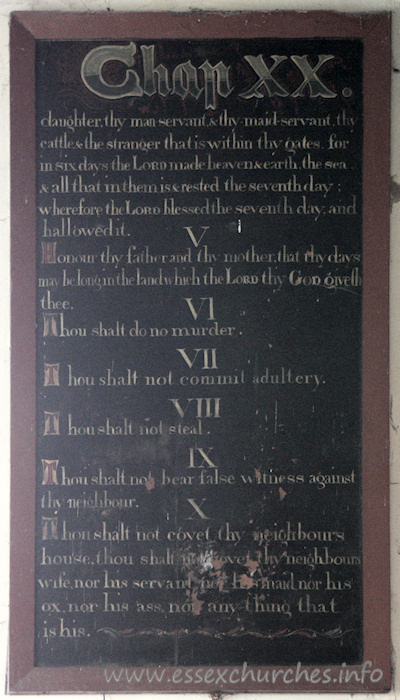 Chap XX.
daughter, thy man servant, & thy maid-servant, thy
cattle, & the stranger that is within thy gates. for
in six days the LORD made heaven & earth, the sea
& all that in them is & rested the seventh day;
wherefore the LORD blessed the seventh day, and
hallowed it.
V
Honour thy father and thy mother, that thy days
may be long in the land which the LORD thy GOD giveth
thee.
VI
Thou shalt do no murder.
VII
Thou shalt not commit adultery.
VIII
Thou shalt not steal.
IX
Thou shalt not bear false witness against
thy neighbour.
X
Thou shalt not covet thy neighbours
house, thou shalt not covet thy neighbours
wife, nor his servant, nor his maid nor his
ox, nor his ass, nor any thing that
is his.
www.essexchurches.info